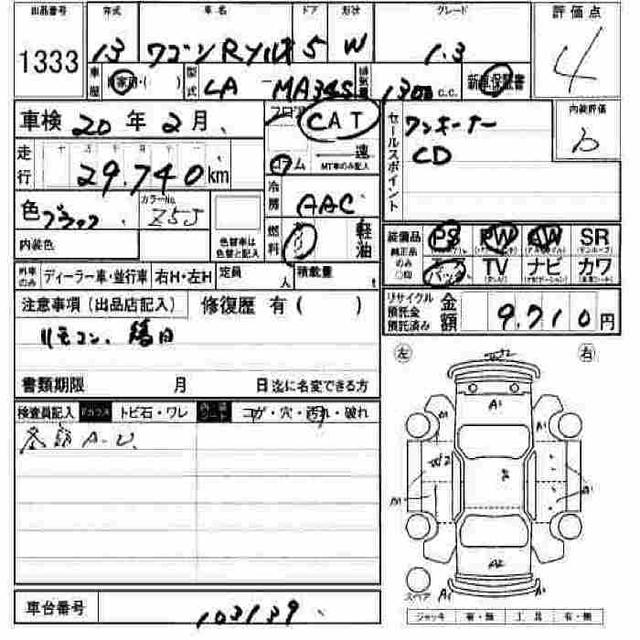 出品番号 年式 車名 ドア 形状 グレード 評価点
1333 13 ワゴンRソリオ 5 W 1.3 4
車歴 自家用・( ) 型式 LA MA34S 排気量 1300 c.c. 新車保証書
車検 20年2月 シフト CAT セールスポイント ワンオーナー 内装評価 b
CD
走行 29.740km 速 MT車のみ記入
冷房 AAC
色 ブラック カラーNo. Z5J 色替車は色替と記入 燃料 軽油
内装色
装備品 純正品のみ○印 PS PW AW SR
TV ナビ カワ
外車のみ ディーラー車・並行車 右H・左H 定員 人 積載量 t
注意事項(出品店記入) 修復歴 有( )
リサイクル預託金預託済み 金額 9.710円
リモコン、
書類期限 月 日迄に名変できる方
左 右
検査員記入 Fガラス トビ石・ワレ 内装シート コゲ・穴・汚れ・破れ
W2
A1
W2
A1
A2
A1 A1
スペア
車台番号 103139
ジャッキ 有・無 工具 有・無